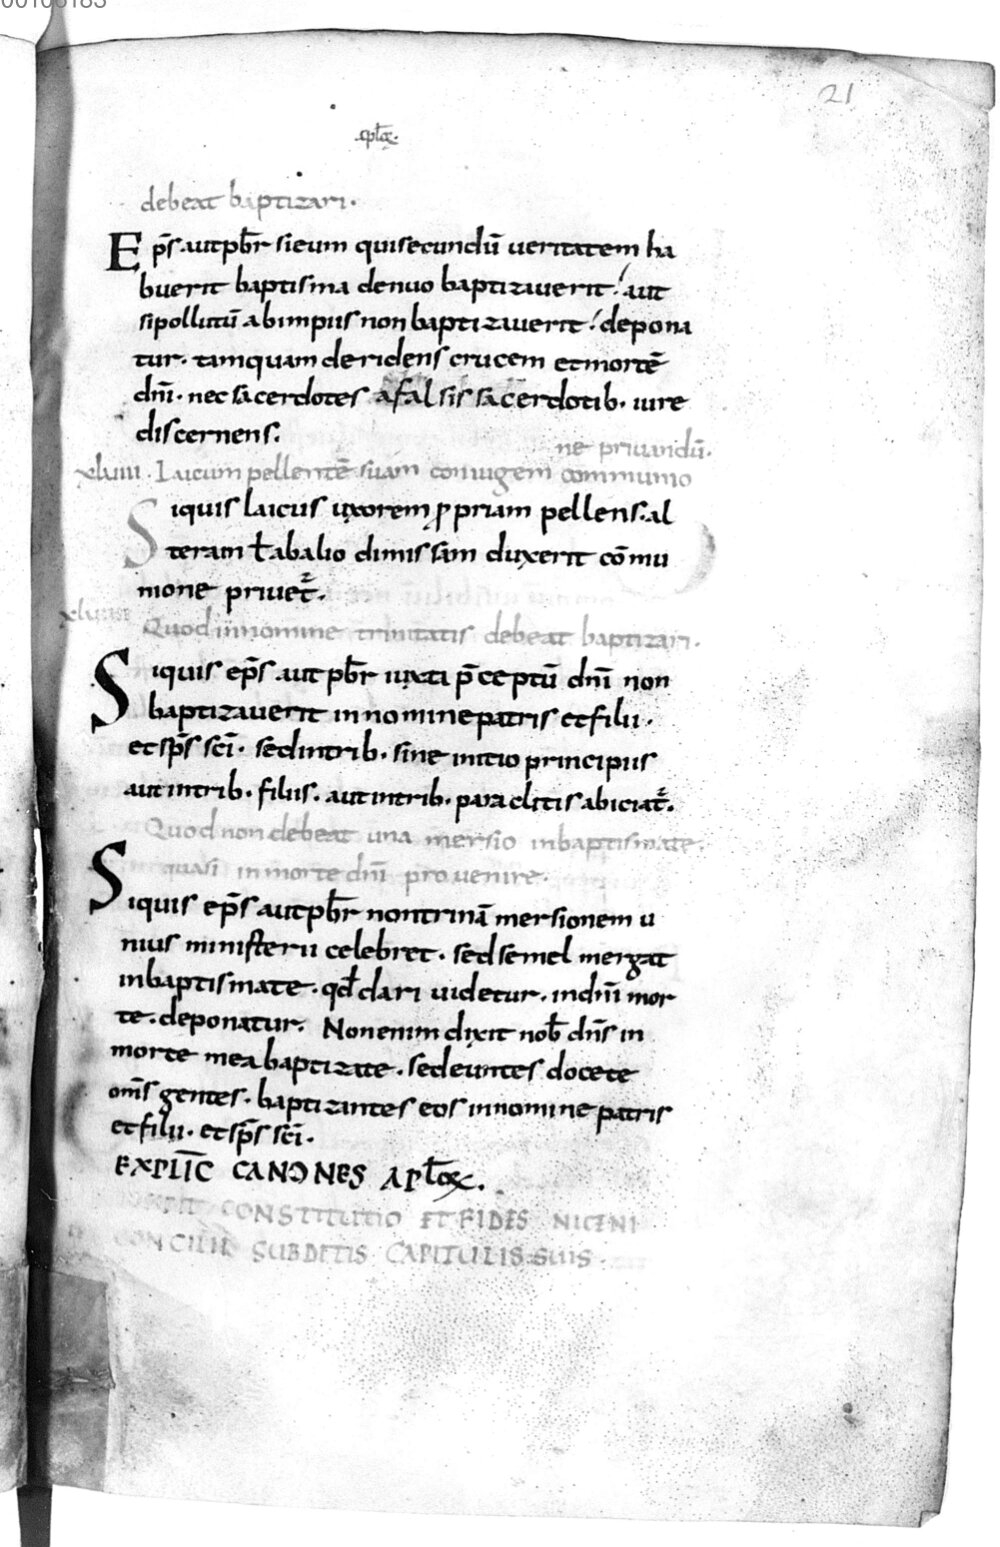 00106183
21
apl̄oꝝ.
debeat baptizari.
Ep̄s. aut pb̄r si eum qui secundū ueritatem ha
buerit baptisma denuo baptizauerit; aut
si pollutū ab impiis non baptizauerit; depona
tur. tamquam deridens crucem et mortē
dn̄i. nec sacerdotes a falsis sacerdotib. iure
discernens.
ne priuandū.
xlviii. Laicum pellentē suam coniugem communio
Siquis laicus uxorem ꝓpriam pellens. al
teram ł ab alio dimissam duxerit cōmu
nione priuet̄.
xlviiii
Quod in nomine trinitatis debeat baptizari.
Siquis ep̄s aut pb̄r iuxta p̄ceptū dn̄i non
baptizauerit in nomine patris et filii.
et sp̄s sc̄i. sed in trib. sine initio principiis
aut in trib. filiis. aut in trib. paraclitis abiciat̄.
Quod non debeat una mersio in baptismate.
quasi in morte dn̄i prouenire.
Siquis ep̄s aut pb̄r non trinā mersionem u
nius ministerii celebret. sed semel mergat
in baptismate. qd̄ dari uidetur. in dn̄i mor
te. deponatur. Non enim dixit nob̄ dn̄s in
morte mea baptizate. sed euntes docete
om̄s gentes. baptizantes eos in nomine patris
et filii. et sp̄s sc̄i.
EXPLIC̄ CANONES APL̄OꝜ.
CONSTITUTIO ET FIDES NICENI
CONCILII SUBDITIS CAPITULIS SUIS.